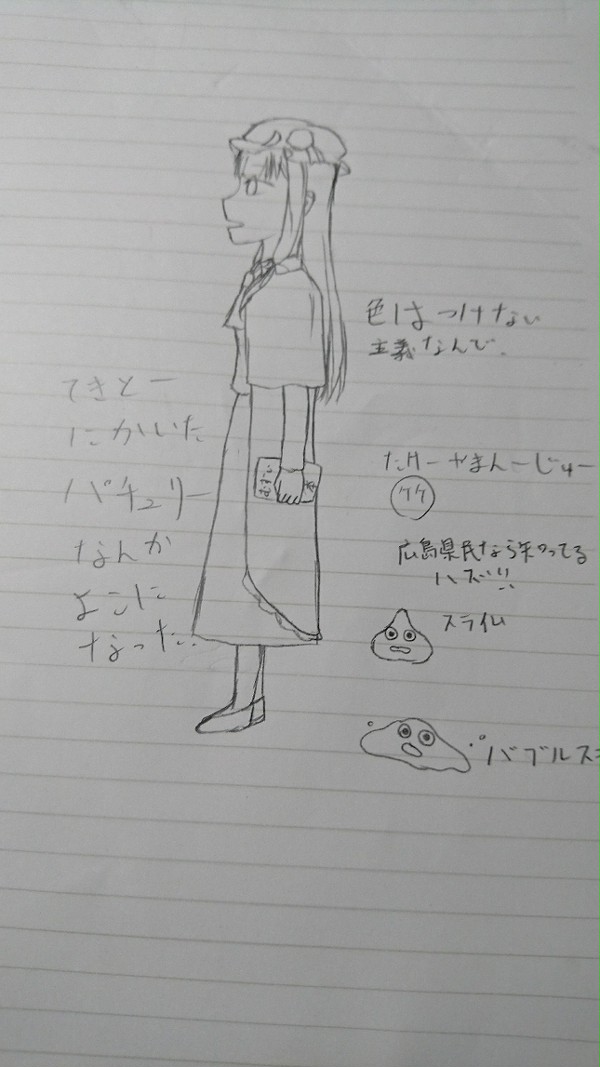 色はつけない
主義なんで.
てきとー
にかいた
パチュリー
なんか
よこに
なった..
たけーやまんーじゅー
ケケ
広島県民なら知ってる
ハズ!!
スライム
バブルス